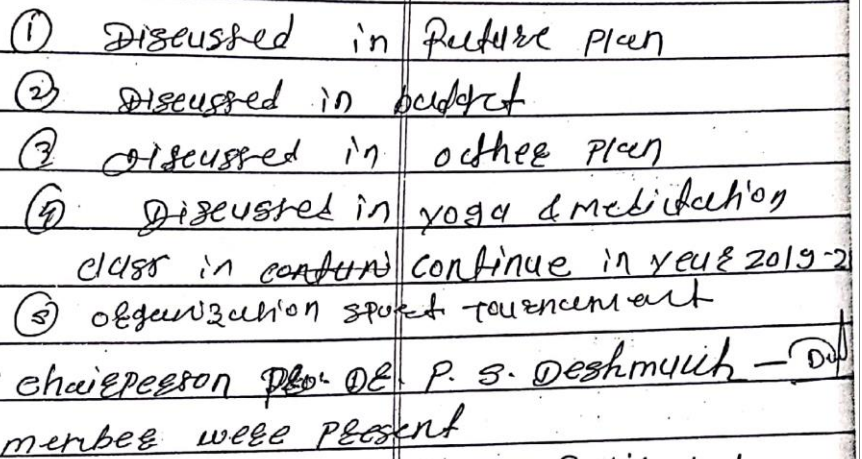 ① Discussed in Future plan
② Discussed in budget
③ Discussed in other plan
④ Discussed in yoga & meditation
class in continue in year 2019-2
⑤ organization sport tournament
chairperson Pro. Dr. P. S. Deshmukh -
member were present